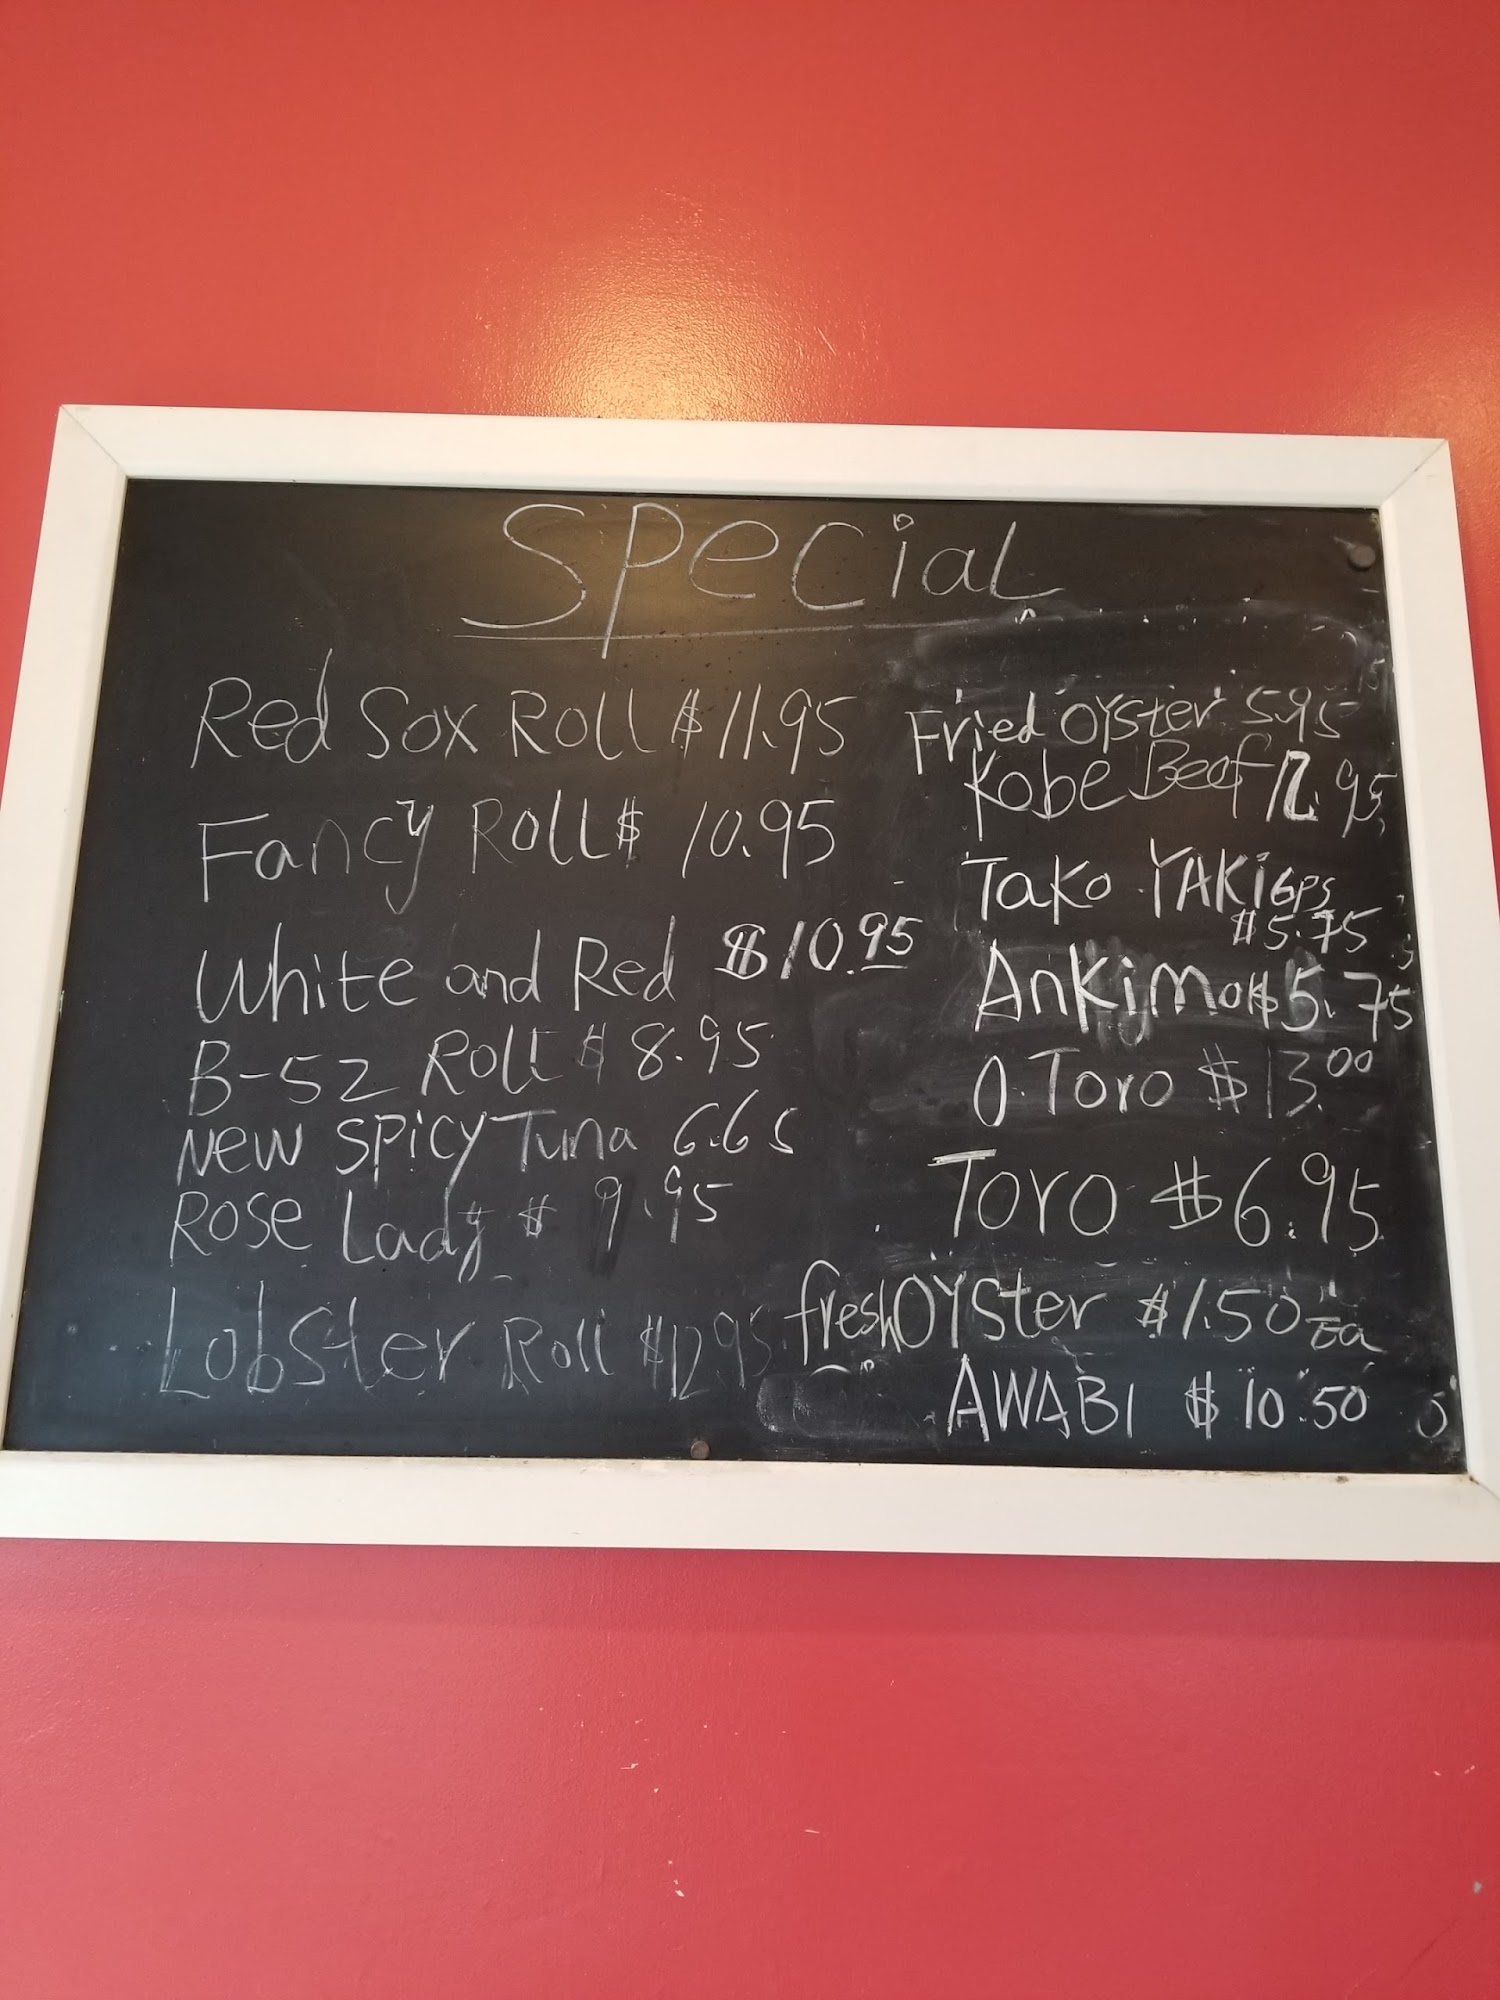 Special
Red Sox Roll $11.95
Fancy Roll $ 10.95
White and Red $10.95
B-52 Roll $ 8.95
New Spicy Tuna 6.65
Rose Lady $ 9.95
Lobster Roll $12.95
Fried Oyster 5.95
Kobe Beef 12.95
Tako YAKi 6ps
$5.75
Ankimo $5.75
O.Toro $13.00
Toro $6.95
fresh Oyster $1.50 Ea
AWABI $10.50